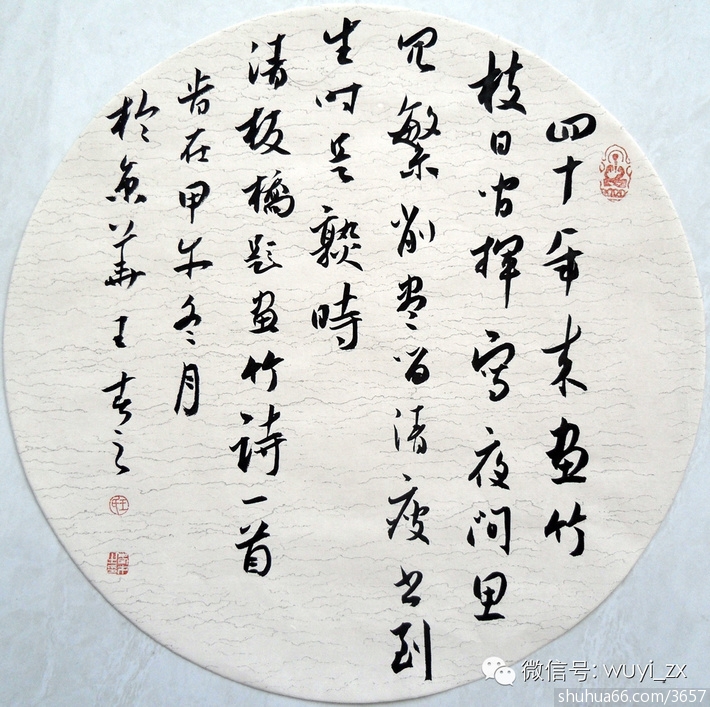 四十年来画竹
枝日间揮寫夜间思
冗繁削尽留清瘦画到
生时是熟時
清板橋题画竹詩一首
岁在甲午冬月
於京華王
微信号: wuyi_zx
shuhua66.com/3657